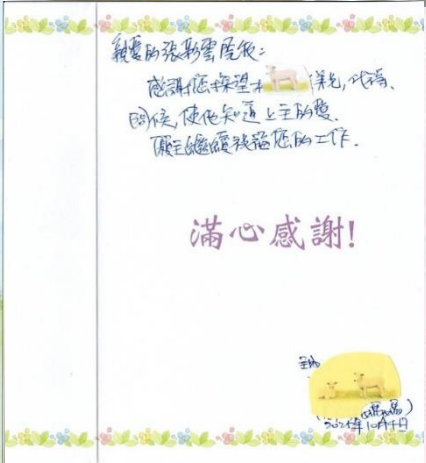 親愛的張彩雲院牧：
感謝您來探望本 弟兄，代禱、
問候，使他知道上主的愛。
願主繼續祝福您的工作。
滿心感謝！
主內
媽媽)
2021年10月4日